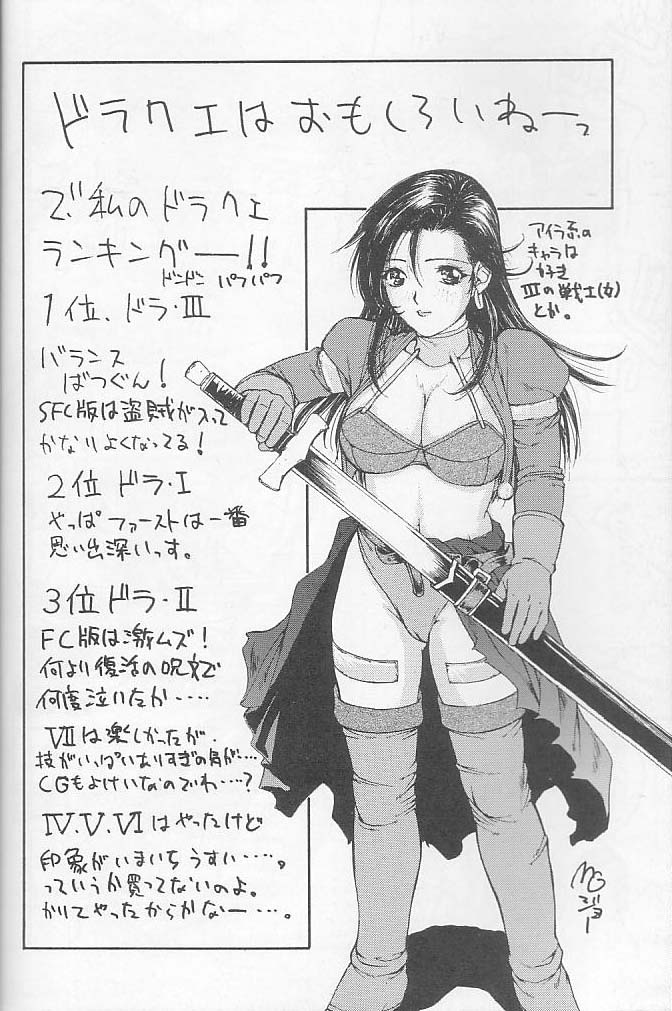 ドラクエはおもしろいねーっ
で、私のドラクエ
ランキングー!!
ドンドン パフパフ
1位、ドラ・III
バランス
ばつぐん!
SFC版は盗賊が入って
かなりよくなってる!
2位 ドラ・I
やっぱファーストは一番
思い出深いっす。
3位ドラ・II
FC版は激ムズ!
何より復活の呪文で
何度泣いたか‥‥
VIIは楽しかったが、
技がいっぱいありすぎの角が‥‥
CGもよけいなのでわ‥‥?
IV.V.VIはやったけど
印象がいまいちうすい‥‥。
っていうか買ってないのよ。
かりてやったからかなー‥‥。
アイラ系の
キャラは
好き
IIIの戦士(女)
とか。
MGジョー